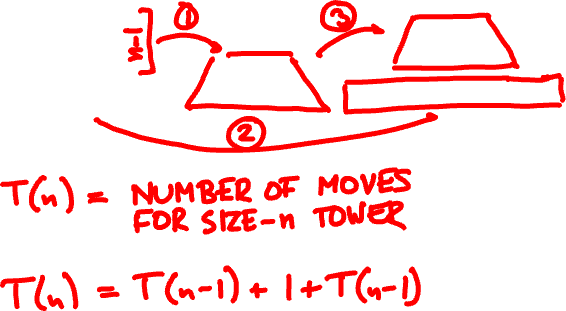 n-1
①
③
②
T(n) = NUMBER OF MOVES
FOR SIZE-n TOWER
T(n) = T(n-1) + 1 + T(n-1)